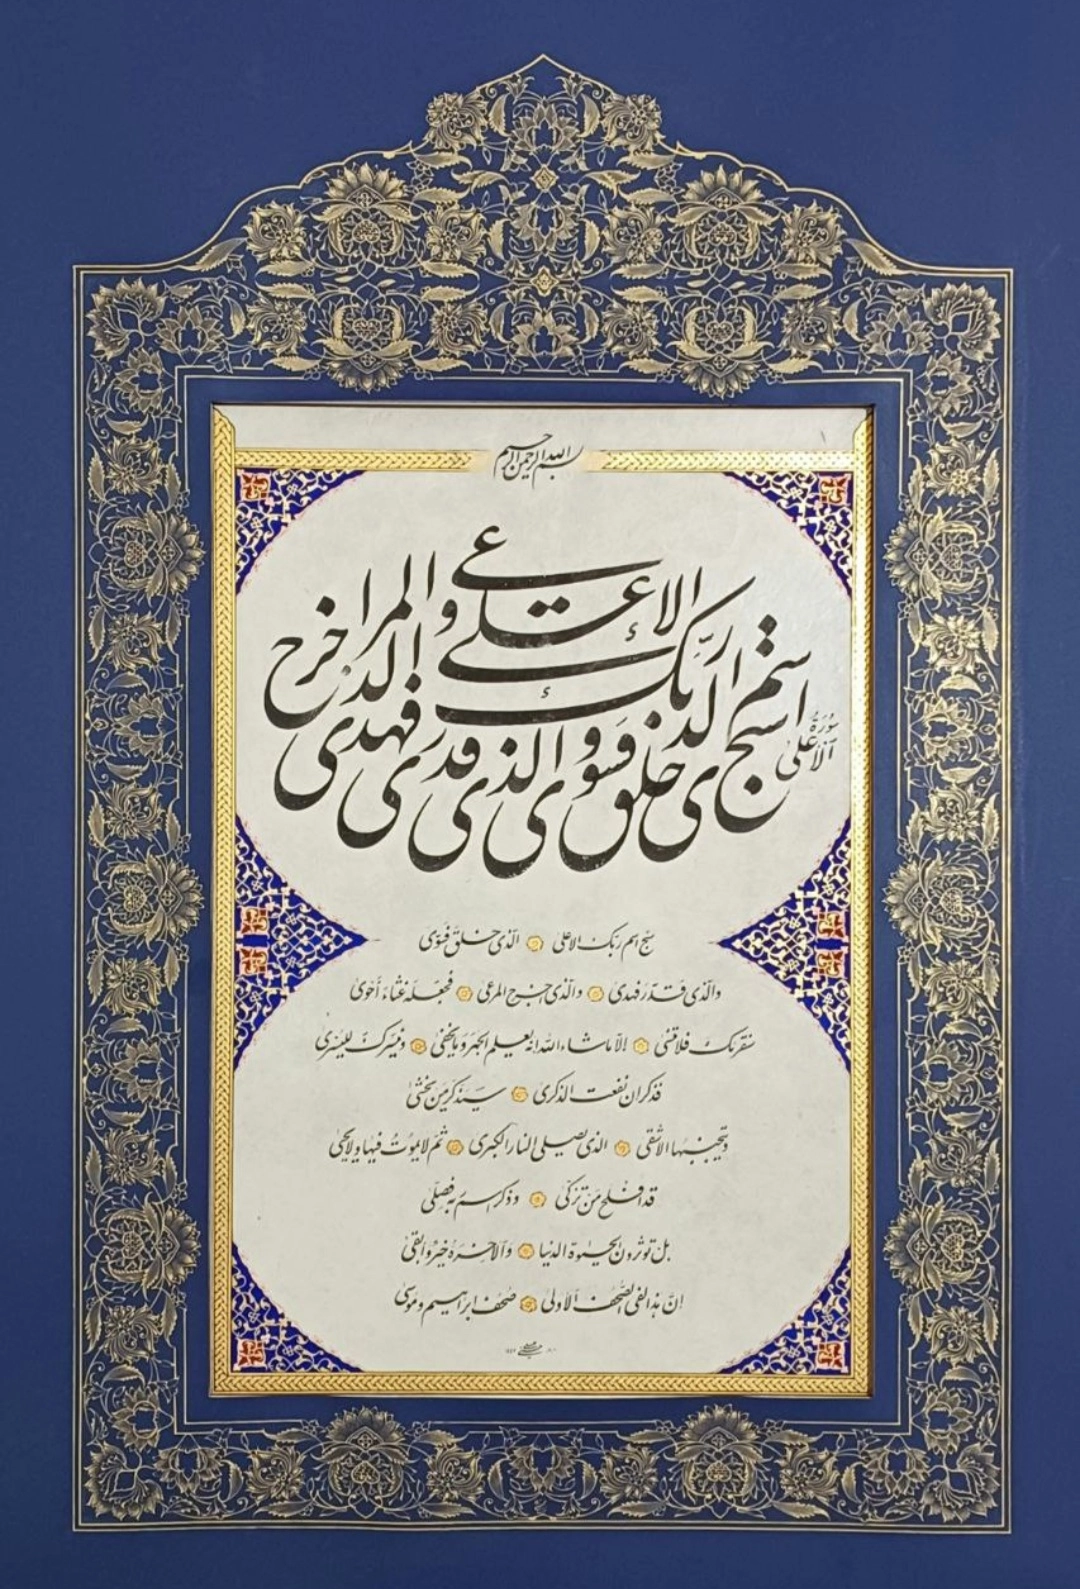 بسم الله الرحمن الرحيم
سورة الاعلى
سبح اسم ربك الاعلى الذى خلق فسوى والذى قدر فهدى والذى اخرج المرعى
سبح اسم ربك الاعلى الذى خلق فسوى
والذى قدر فهدى والذى اخرج المرعى فجعله غثاء احوى
سنقرئك فلا تنسى الا ما شاء الله انه يعلم الجهر وما يخفى ونيسرك لليسرى
فذكر ان نفعت الذكرى سيذكر من يخشى
ويتجنبها الاشقى الذى يصلى النار الكبرى ثم لا يموت فيها ولا يحيى
قد افلح من تزكى وذكر اسم ربه فصلى
بل تؤثرون الحيوة الدنيا والآخرة خير وابقى
ان هذا لفى الصحف الاولى صحف ابراهيم وموسى